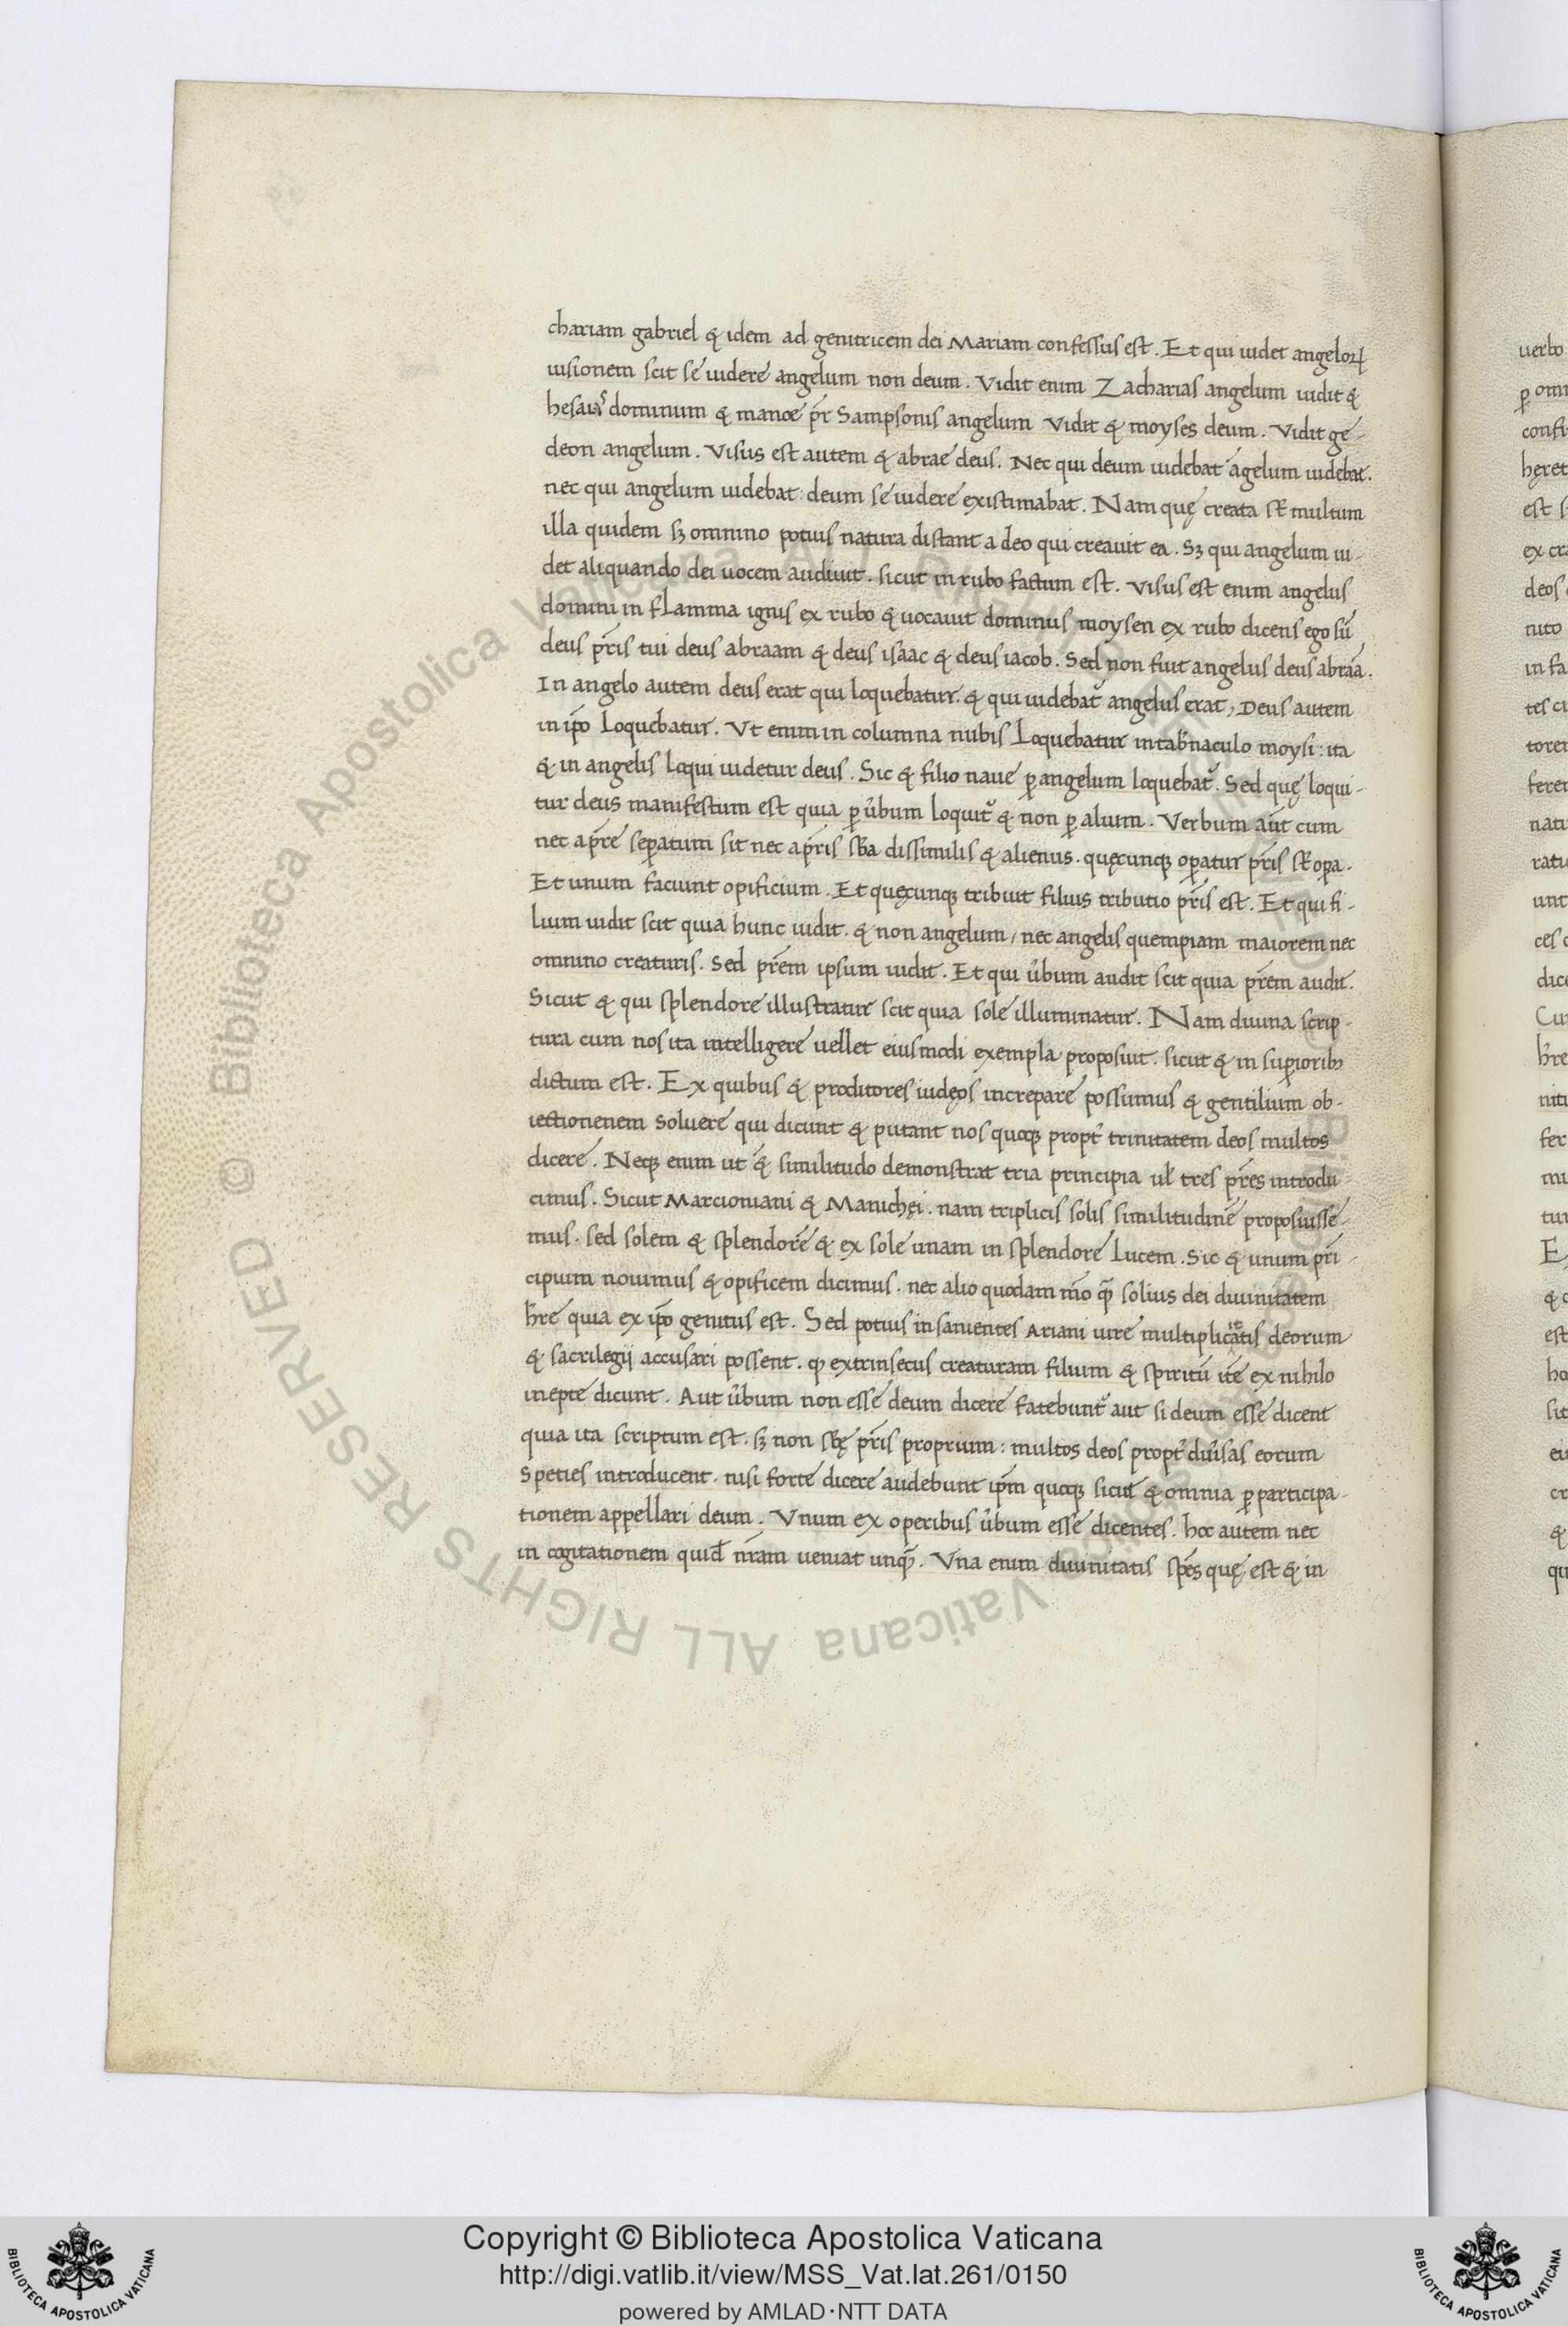 chariam gabriel & idem ad genitricem dei Mariam confessus est. Et qui uidet angeloꝝ
uisionem scit se uidere angelum non deum. Vidit enim Zacharias angelum uidit &
hesaias dominum & manoe pr̄ Sampsonis angelum Vidit & moyses deum. Vidit ge-
deon angelum. Visus est autem & abrae deus. Nec qui deum uidebat āgelum uidebat.
nec qui angelum uidebat: deum se uidere existimabat. Nam quę creata st̄ multum
illa quidem sꝫ omnino potius natura distant a deo qui creauit ea. Sꝫ qui angelum ui-
det aliquando dei uocem audiuit. sicut in rubo factum est. Visus est enim angelus
domini in flamma ignis ex rubo & uocauit dominus moysen ex rubo dicens ego sū
deus pr̄is tui deus abraam & deus isaac & deus iacob. Sed non fuit angelus deus abraā.
In angelo autem deus erat qui loquebatur. & qui uidebat᷑ angelus erat, Deus autem
in ip̄o loquebatur. Vt enim in columna nubis loquebatur in tab̄naculo moysi: ita
& in angelis loqui uidetur deus. Sic & filio naue ꝑ angelum loquebat᷑. Sed quę loqui-
tur deus manifestum est quia ꝑ u̓bum loquit᷑ & non ꝑ alium. Verbum aūt cum
nec a pr̄e seꝑatum sit nec a pr̄is sb̄a dissimilis & alienus. quęcunqꝫ oꝑatur pr̄is st̄ oꝑa.
Et unum faciunt opificium. Et quęcunqꝫ tribuit filius tributio pr̄is est. Et qui fi-
lium uidit scit quia hunc uidit. & non angelum, nec angelis quempiam maiorem nec
omnino creaturis. Sed pr̄em ipsum uidit. Et qui u̓bum audit scit quia pr̄em audit.
Sicut & qui splendore illustratur scit quia sole illuminatur. Nam diuina scrip-
tura cum nos ita intelligere uellet eiusmodi exempla proposuit. sicut & in suꝑioribꝫ
dictum est. Ex quibus & proditores iudęos increpare possumus & gentilium ob-
iectionenem soluere qui dicunt & putant nos quoqꝫ propt̓ trinitatem deos multos
dicere. Neqꝫ enim ut & similitudo demonstrat tria principia ul̓ tres pr̄es introdu-
cimus. Sicut Marcioniani & Manichęi. nam triplicis solis similitudinē proposuisse-
mus. sed solem & splendorē & ex sole unam in splendore lucem. Sic & unum pri-
cipium nouimus & opificem dicimus. nec alio quodam mō qꝫ̄ solius dei diuinitatem
hr̄e quia ex ip̄o genitus est. Sed potius insanientes Ariani iure multiplicitatis deorum
& sacrilegij accusari possent. ꝙ extrinsecus creaturam filium & spiritū itē ex nihilo
inepte dicunt. Aut u̓bum non esse deum dicere fatebunt᷑ aut si deum esse dicent
quia ita scriptum est. sꝫ non sb̄ę pr̄is proprium: multos deos propt̓ diu̓sas eorum
Speties introducent. nisi forte dicere audebunt ip̄m quoqꝫ sicut & omnia ꝑ participa-
tionem appellari deum. Vnum ex operibus u̓bum esse dicentes. hoc autem nec
in cogitationem quid̄ nr̄am ueniat unqꝫ̄. Vna enim diuinitatis sp̄es quę est & in